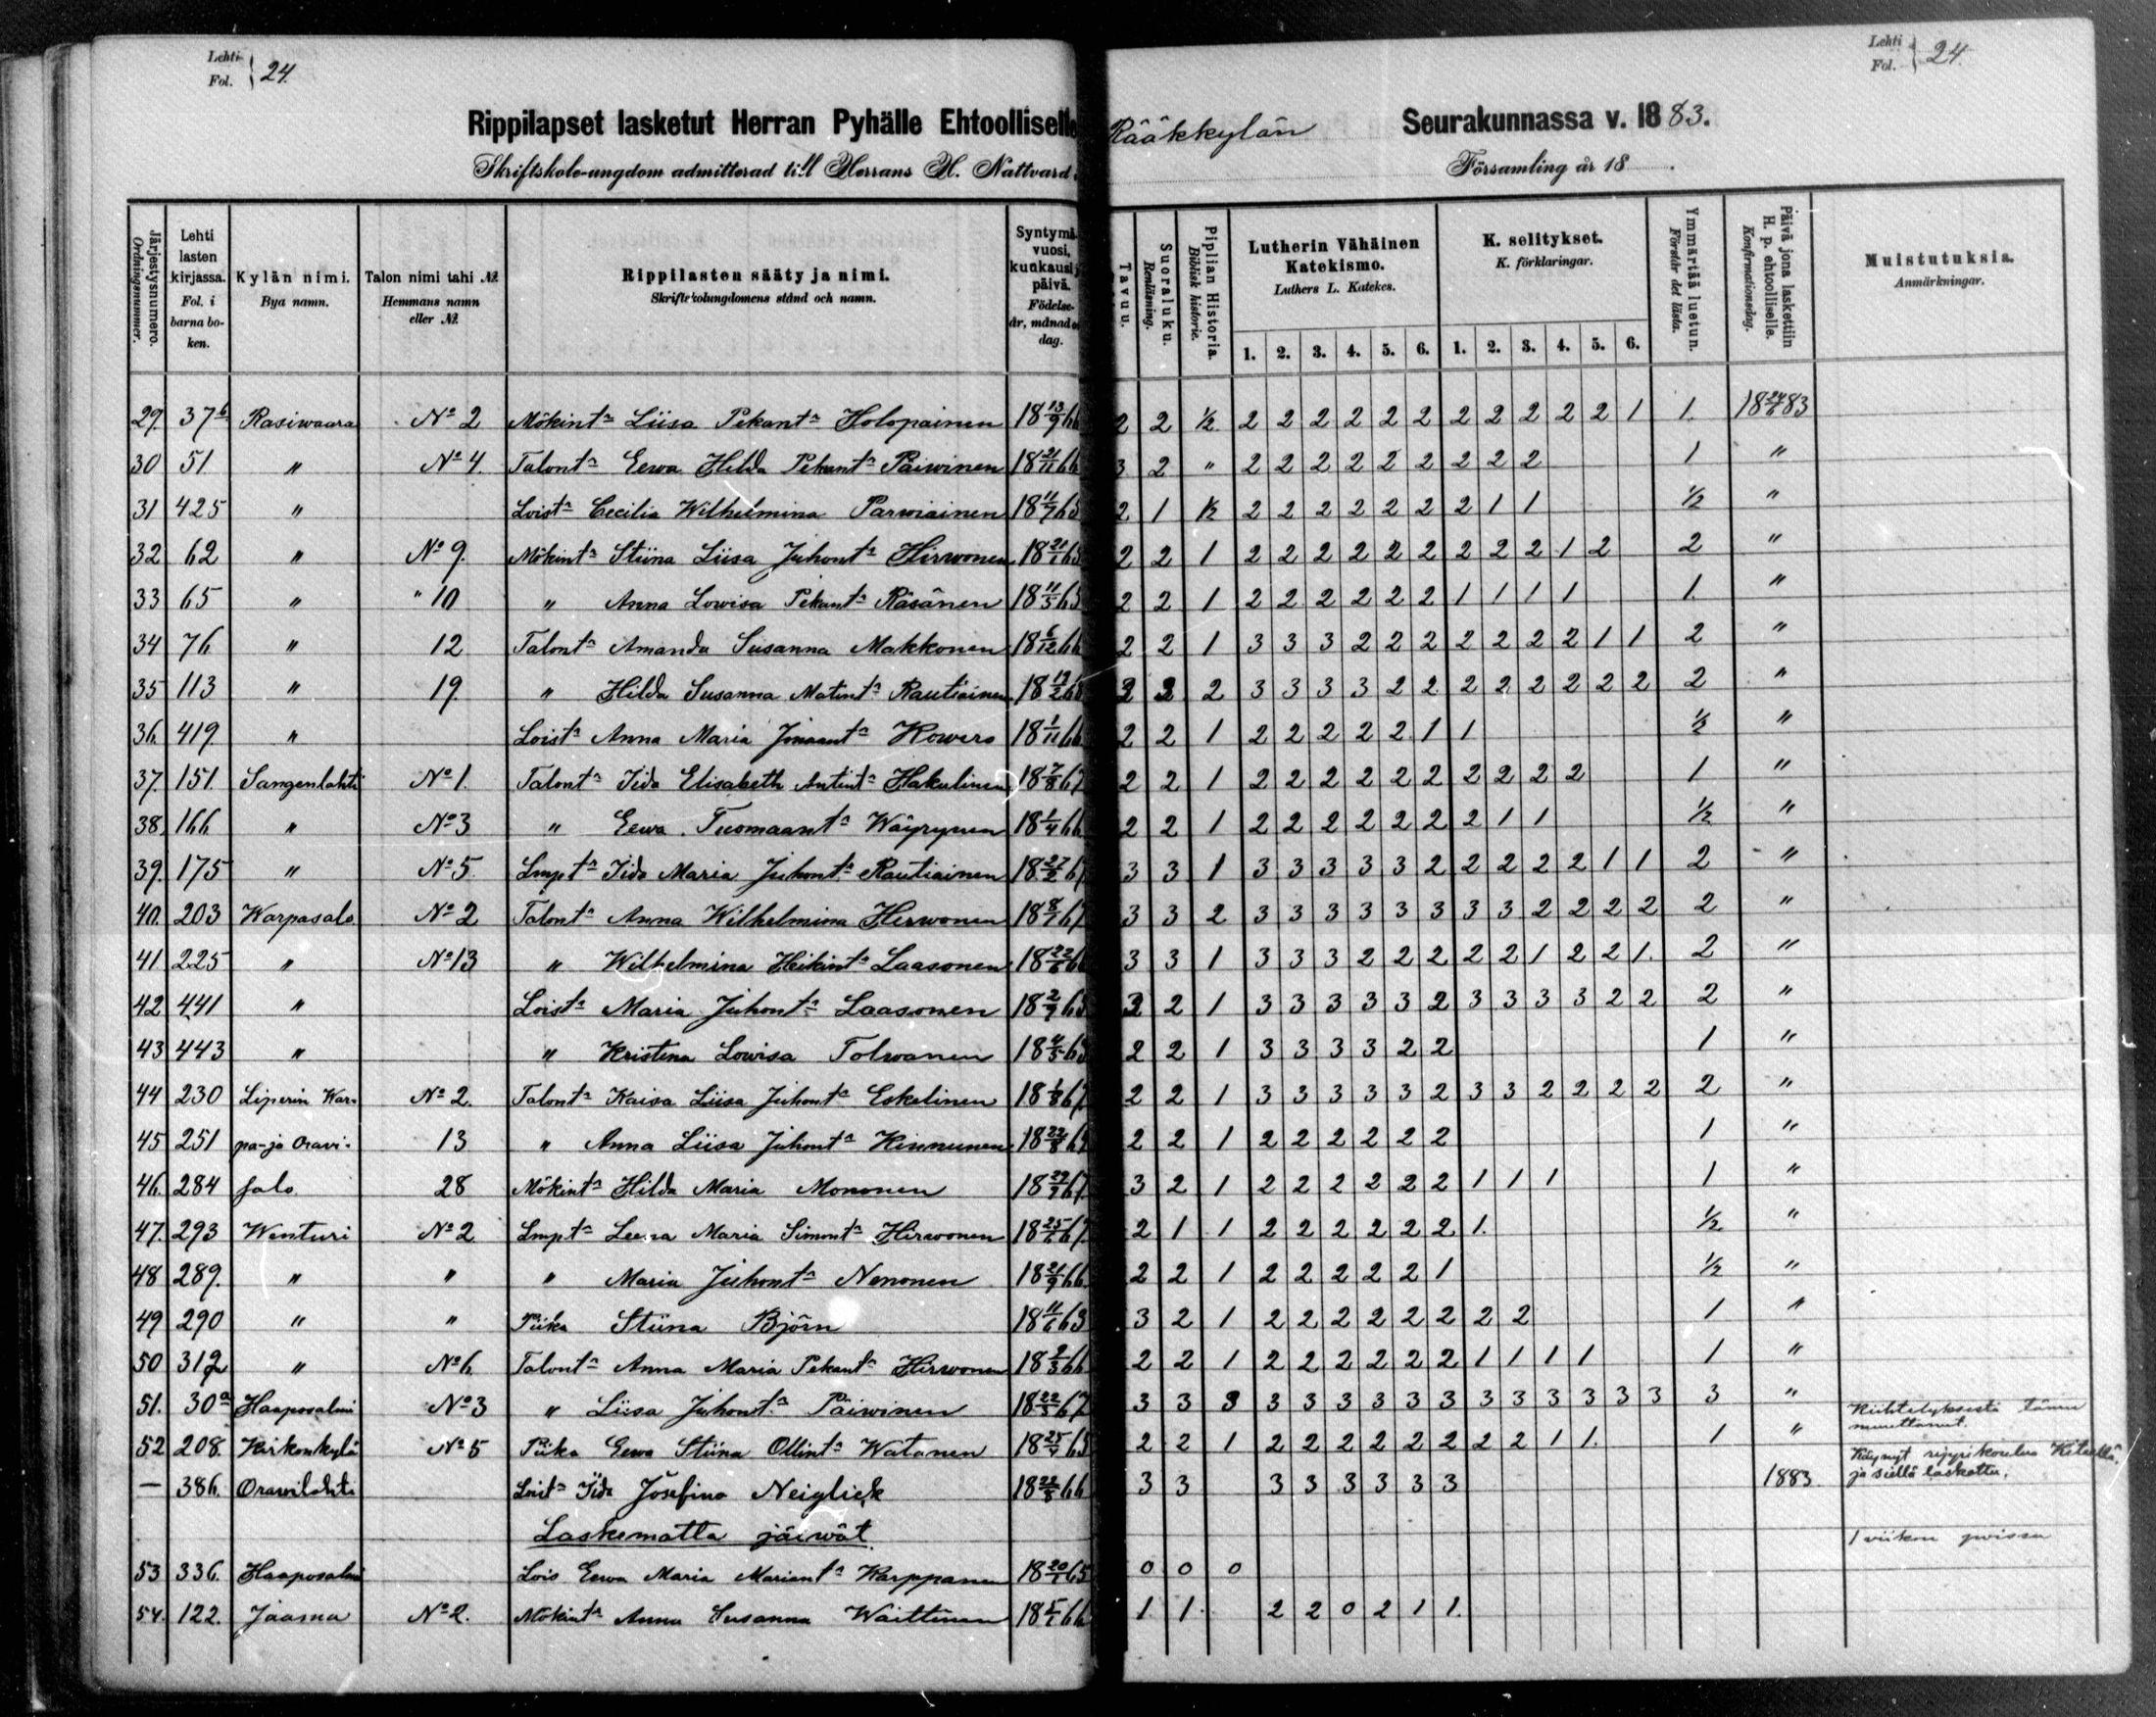 Lehti Fol. } 24.
Lehti Fol. } 24.
Rippilapset lasketut Herran Pyhälle Ehtoolliselle Rääkkylän Seurakunnassa v. 1883.
Skriftskole-ungdom admitterad till Herrans H. Nattvard Församling år 18 .
Järjestysnumero. Ordningsnummer. | Lehti lasten kirjassa. Fol. i barna boken. | Kylän nimi. Bya namn. | Talon nimi tahi №. Hemmans namn eller №. | Rippilasten sääty ja nimi. Skriftskolungdomens stånd och namn. | Syntymä vuosi, kuukausi päivä. Födelse-år, månad dag. | Tavuu. | Suoraluku. Renläsning. | Piplian Historia. Biblisk historie. | Lutherin Vähäinen Katekismo. Luthers L. Katekes. 1. 2. 3. 4. 5. 6. | K. selitykset. K. förklaringar. 1. 2. 3. 4. 5. 6. | Ymmärtää luetun. Förstår det lästa. | Päivä jona laskettiin H. p. ehtoolliselle. Konfirmationsdag. | Muistutuksia. Anmärkningar.
29. 37b Rasiwaara No 2 Mökint:a Liisa Pekant:a Holopainen 18 13/9 66 2 2 1/2 2 2 2 2 2 2 2 2 2 2 2 1 1. 18 24/6 83
30 51 " No 4. Talont:a Eewa Hilda Pekant:a Päiwinen 18 21/11 66 3 2 " 2 2 2 2 2 2 2 2 2 1 "
31 425 " Loist:a Cecilia Wilhelmina Parwiainen 18 11/7 65 2 1 1/2 2 2 2 2 2 2 2 1 1 1/2 "
32 62 " No 9. Mökint:a Stiina Liisa Juhont:a Hirwonen 18 21/1 65 2 2 1 2 2 2 2 2 2 2 2 2 1 2 2 "
33 65 " " 10 " Anna Lowisa Pekant:a Räsänen 18 11/5 65 2 2 1 2 2 2 2 2 2 1 1 1 1 1 "
34 76 " 12 Talont:a Amanda Susanna Makkonen 18 6/12 66 2 2 1 3 3 3 2 2 2 2 2 2 2 1 1 2 "
35 113 " 19. " Hilda Susanna Matint:a Rautiainen 18 12/2 2 2 2 3 3 3 3 2 2 2 2 2 2 2 2 2 "
36. 419. " Loist:a Anna Maria Kowero 18 1/11 66 2 2 1 2 2 2 2 2 1 1 1/2 "
37. 151. Sangenlahti No 1. Talont:a Iida Elisabeth Antint:a Hakulinen 18 7/8 67 2 2 1 2 2 2 2 2 2 2 2 2 2 1 "
38. 166 " No 3 " Eewa Tuomaant:a Wäyrynen 18 1/4 66 2 2 1 2 2 2 2 2 2 2 1 1 1/2 "
39. 175 " No 5. Lmpt:a Iida Maria Juhont:a Rautiainen 18 27/2 67 3 3 1 3 3 3 3 3 2 2 2 2 2 1 1 2 "
40. 203 Warpasalo. No 2 Talont:a Anna Wilhelmina Hirwonen 18 8/1 67 3 3 2 3 3 3 3 3 3 3 3 2 2 2 2 2 "
41 225 " No 13 " Wilhelmina Heikint:a Laasonen 18 22/6 66 3 3 1 3 3 3 2 2 2 2 2 1 2 2 1. 2 "
42 441 " Loist:a Maria Juhont:a Laasonen 18 2/9 65 3 2 1 3 3 3 3 3 2 3 3 3 3 2 2 2 "
43 443 " " Kristina Lowisa Tolwanen 18 4/5 63 2 2 1 3 3 3 3 2 2 1 "
44 230 Liperin War- No 2. Talont:a Kaisa Liisa Juhont:a Eskelinen 18 1/8 67. 2 2 1 3 3 3 3 3 2 3 3 2 2 2 2 2 "
45 251 pa-ja Oravi- 13 " Anna Liisa Juhont:a Kinnunen 18 22/8 2 2 1 2 2 2 2 2 2 1 "
46. 284 salo. 28 Mökint:a Hilda Maria Mononen 18 29/7 67. 3 2 1 2 2 2 2 2 2 1 1 1 1 "
47. 293 Wenturi No 2. Lmpt:a Leena Maria Simont:a Hirwonen 18 25/6 67. 2 1 1 2 2 2 2 2 2 1. 1/2. "
48 289. " " " Maria Juhont:a Nenonen 18 21/9 66. 2 2 1 2 2 2 2 2 1 1/2 "
49 290 " " Piika Stiina Björn 18 11/6 63 3 2 1 2 2 2 2 2 2 2 2 1 "
50 312 " No 6. Talont:a Anna Maria Pekant:a Hirwonen 18 2/3 66 2 2 1 2 2 2 2 2 2 1 1 1 1 1 "
51. 30a Haaposalmi No 3 " Liisa Juhont:a Päiwinen 18 22/3 67 3 3 3 3 3 3 3 3 3 3 3 3 3 3 3 3 "
52 208. Kirkonkylä No 5 Piika Eewa Stiina Ollint:a Watanen 18 25/4 65 2 2 1 2 2 2 2 2 2 2 2 1 1. 1 " Kiihtelyksestä tänne muuttanut.
— 386. Orawilahti Loist:a Iida Josefina Neiglick 18 22/8 66 3 3 3 3 3 3 3 3 1883 Käynyt rippikoulua Kiteellä, ja siellä laskettu.
Laskematta jäiwät.
53 336. Haaposalmi Lois Eewa Maria Mariant:a Karppanen 18 20/1 65 0 0 0 1 viikon
54. 122. Jaama No 2. Mökint:a Anna Susanna Waittinen 18 5/1 66 1. 1. 2 2 0 2 1 1.